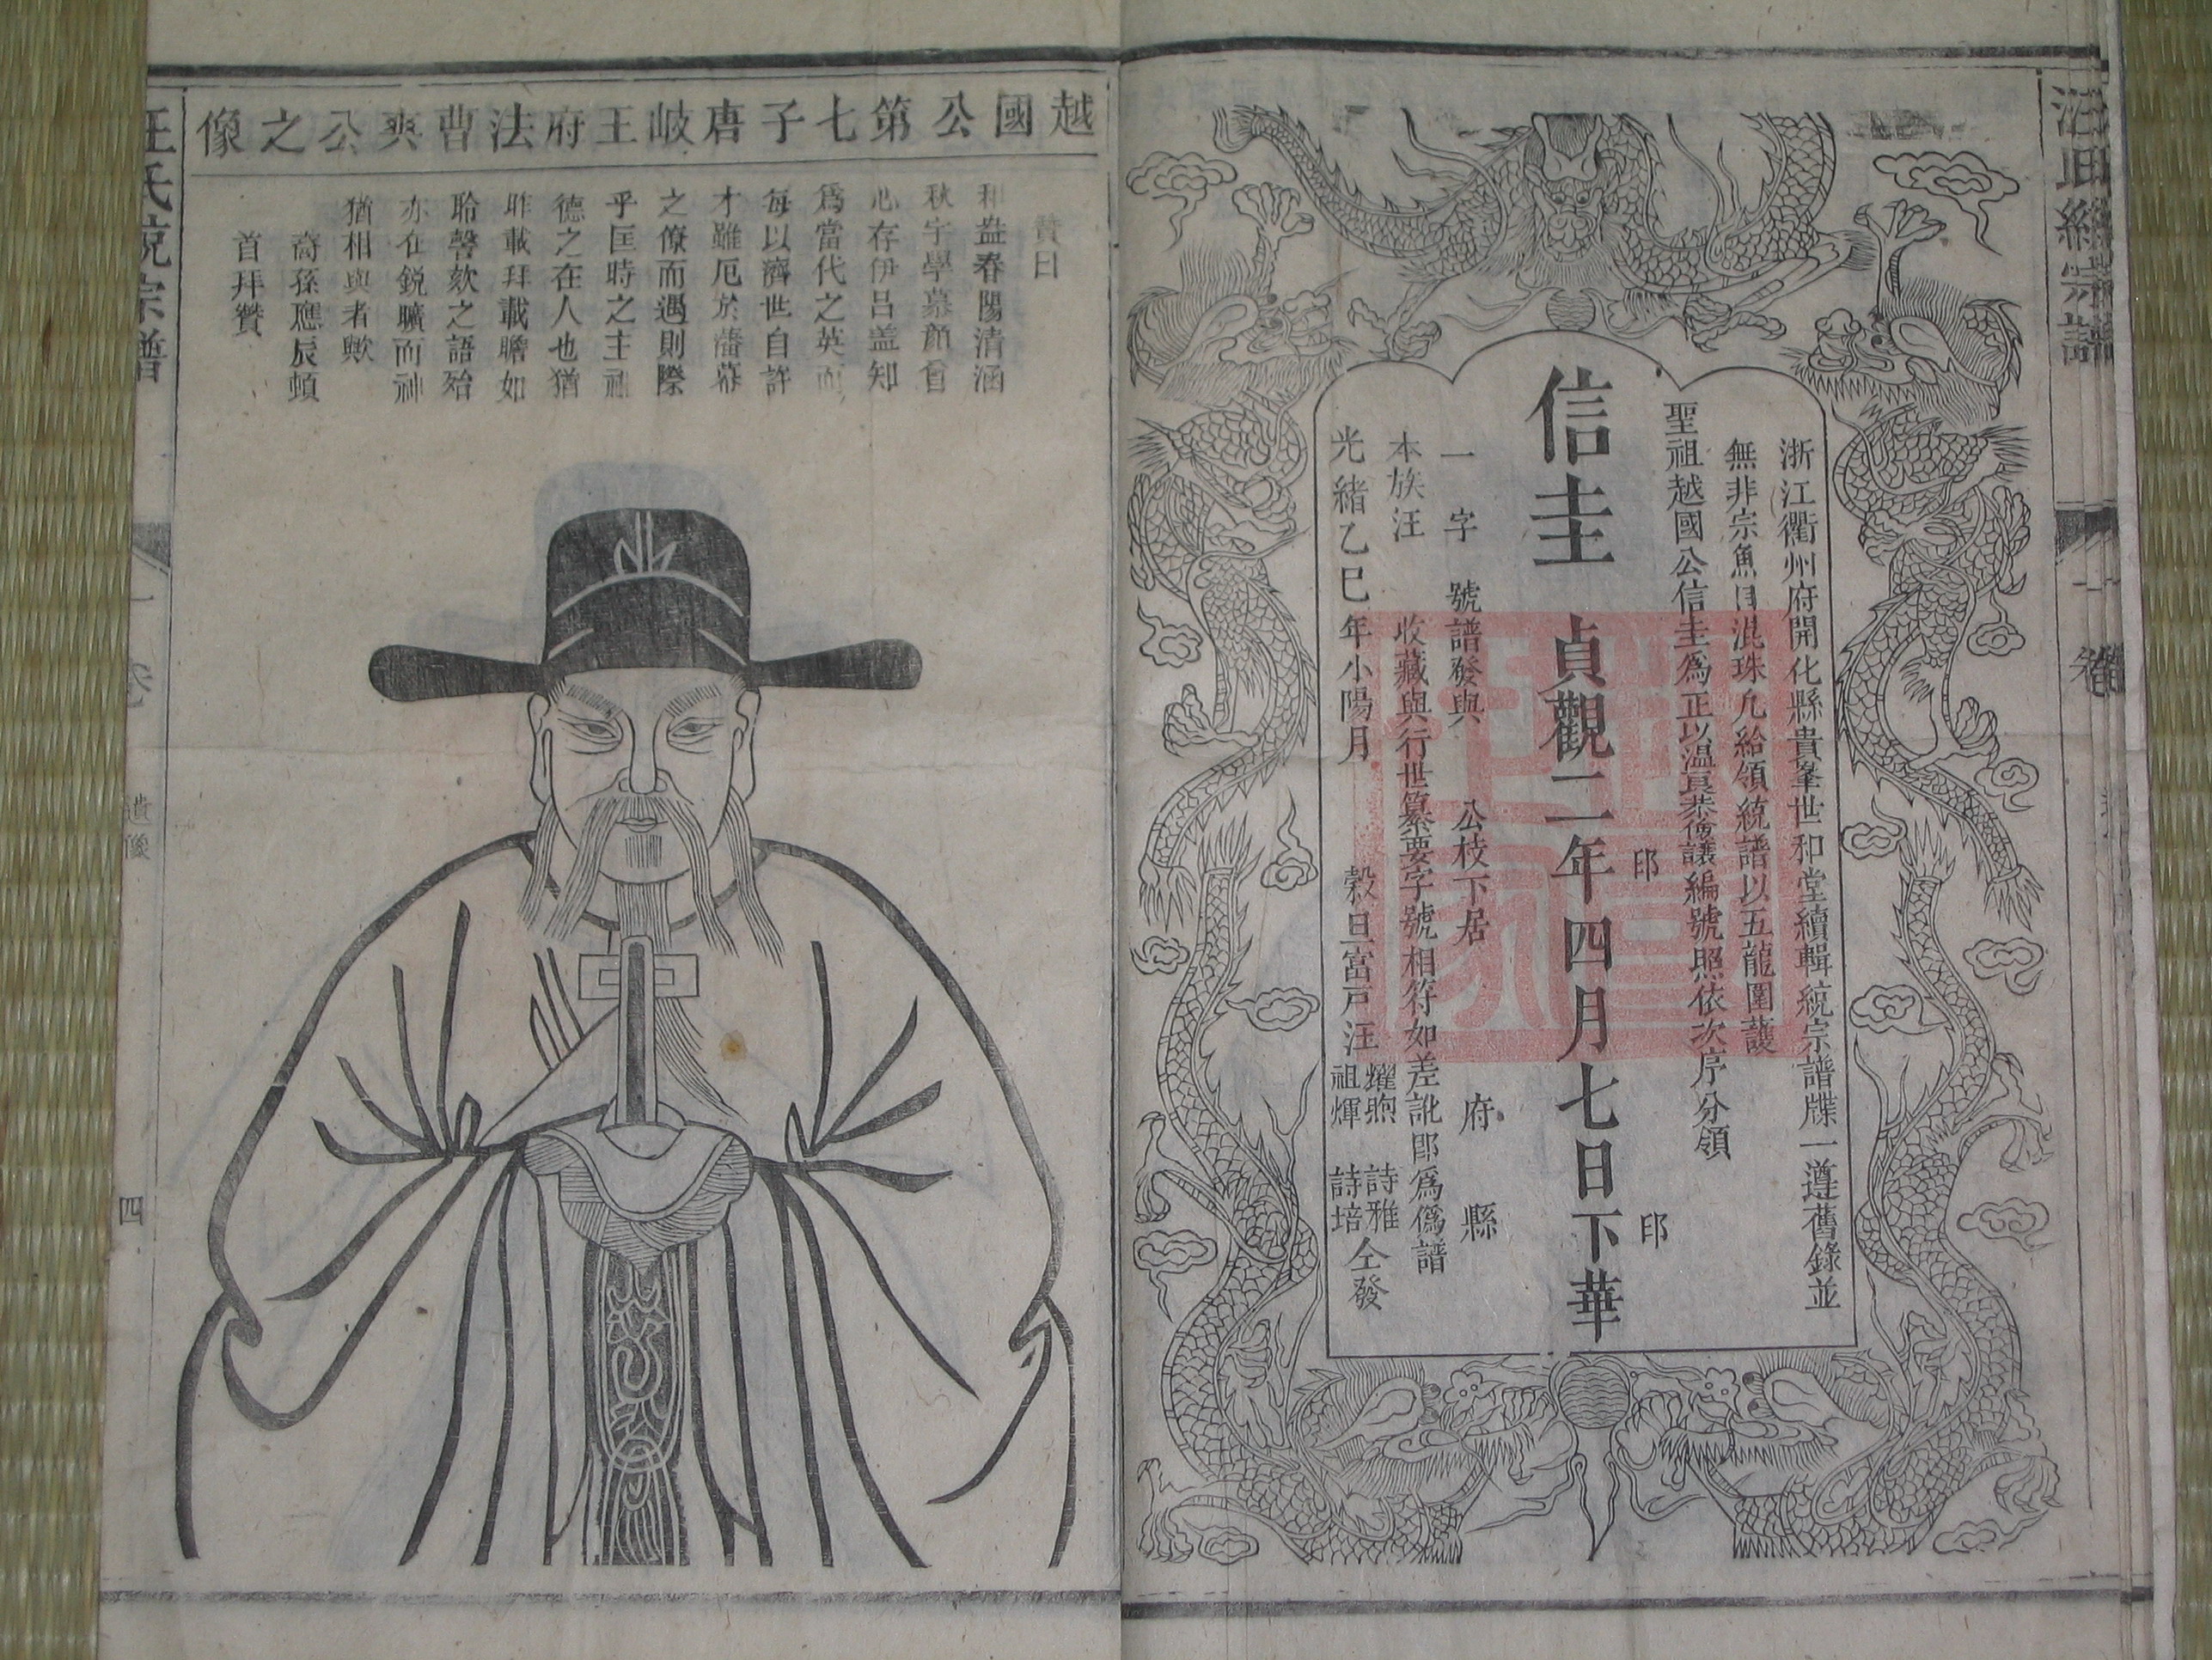 汪氏統宗譜
浙江衢州府開化縣貴峯世和堂續輯統宗譜牒一遵舊錄並
無非宗魚目混珠凡給領統譜以五龍圍護
聖祖越國公信圭爲正以溫良恭儉讓編號照依次序分領
印 印
信圭 貞觀二年四月七日下華
一字 號譜發與 公枝下居 府 縣
本族汪 收藏與行世纂要字號相符如差訛卽爲僞譜
光緒乙巳年小陽月 穀旦富戶汪 燿煦 祖煇 詩雅 詩培 仝發
越國公第七子唐岐王府法曹爽公之像
贊曰
和盎春陽清涵
秋宇學慕顏曾
心存伊呂蓋知
爲當代之英而
每以濟世自許
才雖厄於藩幕
之僚而遇則際
乎匡時之主
德之在人也猶
昨載拜載瞻如
聆謦欬之語殆
亦在銳曠而神
猶相與者歟
裔孫應辰頓
首拜贊
汪氏統宗譜
卷一
遺像
四